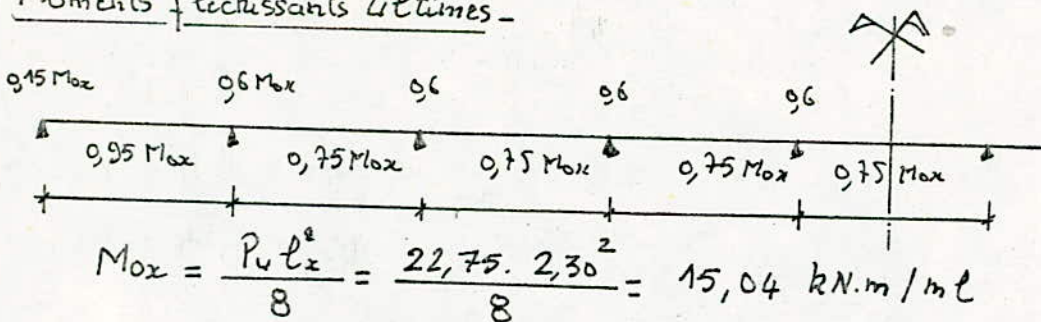 Moments fléchissants ultimes_
0,15 Mox 0,6 Mox 0,6 0,6 0,6
0,95 Mox 0,75 Mox 0,75 Mox 0,75 Mox 0,75 Mox
Mox = Pu lx² / 8 = 22,75. 2,30² / 8 = 15,04 kN.m/ml